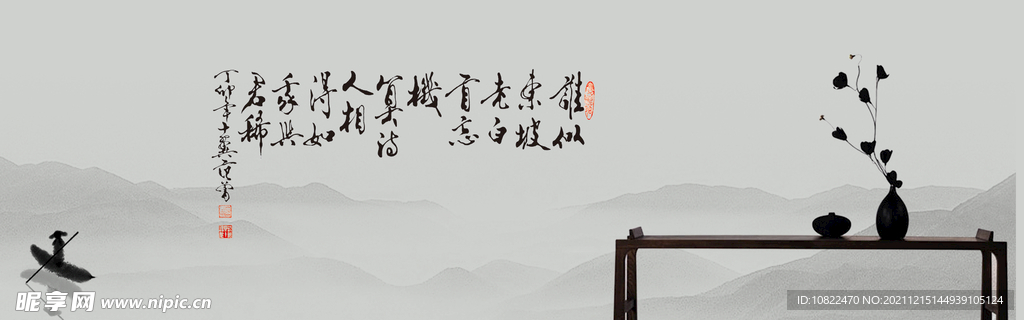 誰似
東坡
老白
首忘
機
算詩
人相
得如
我與
君稀
丁卯年十翼范曾
昵享网 www.nipic.cn
ID:10822470 NO:20211215144939105124